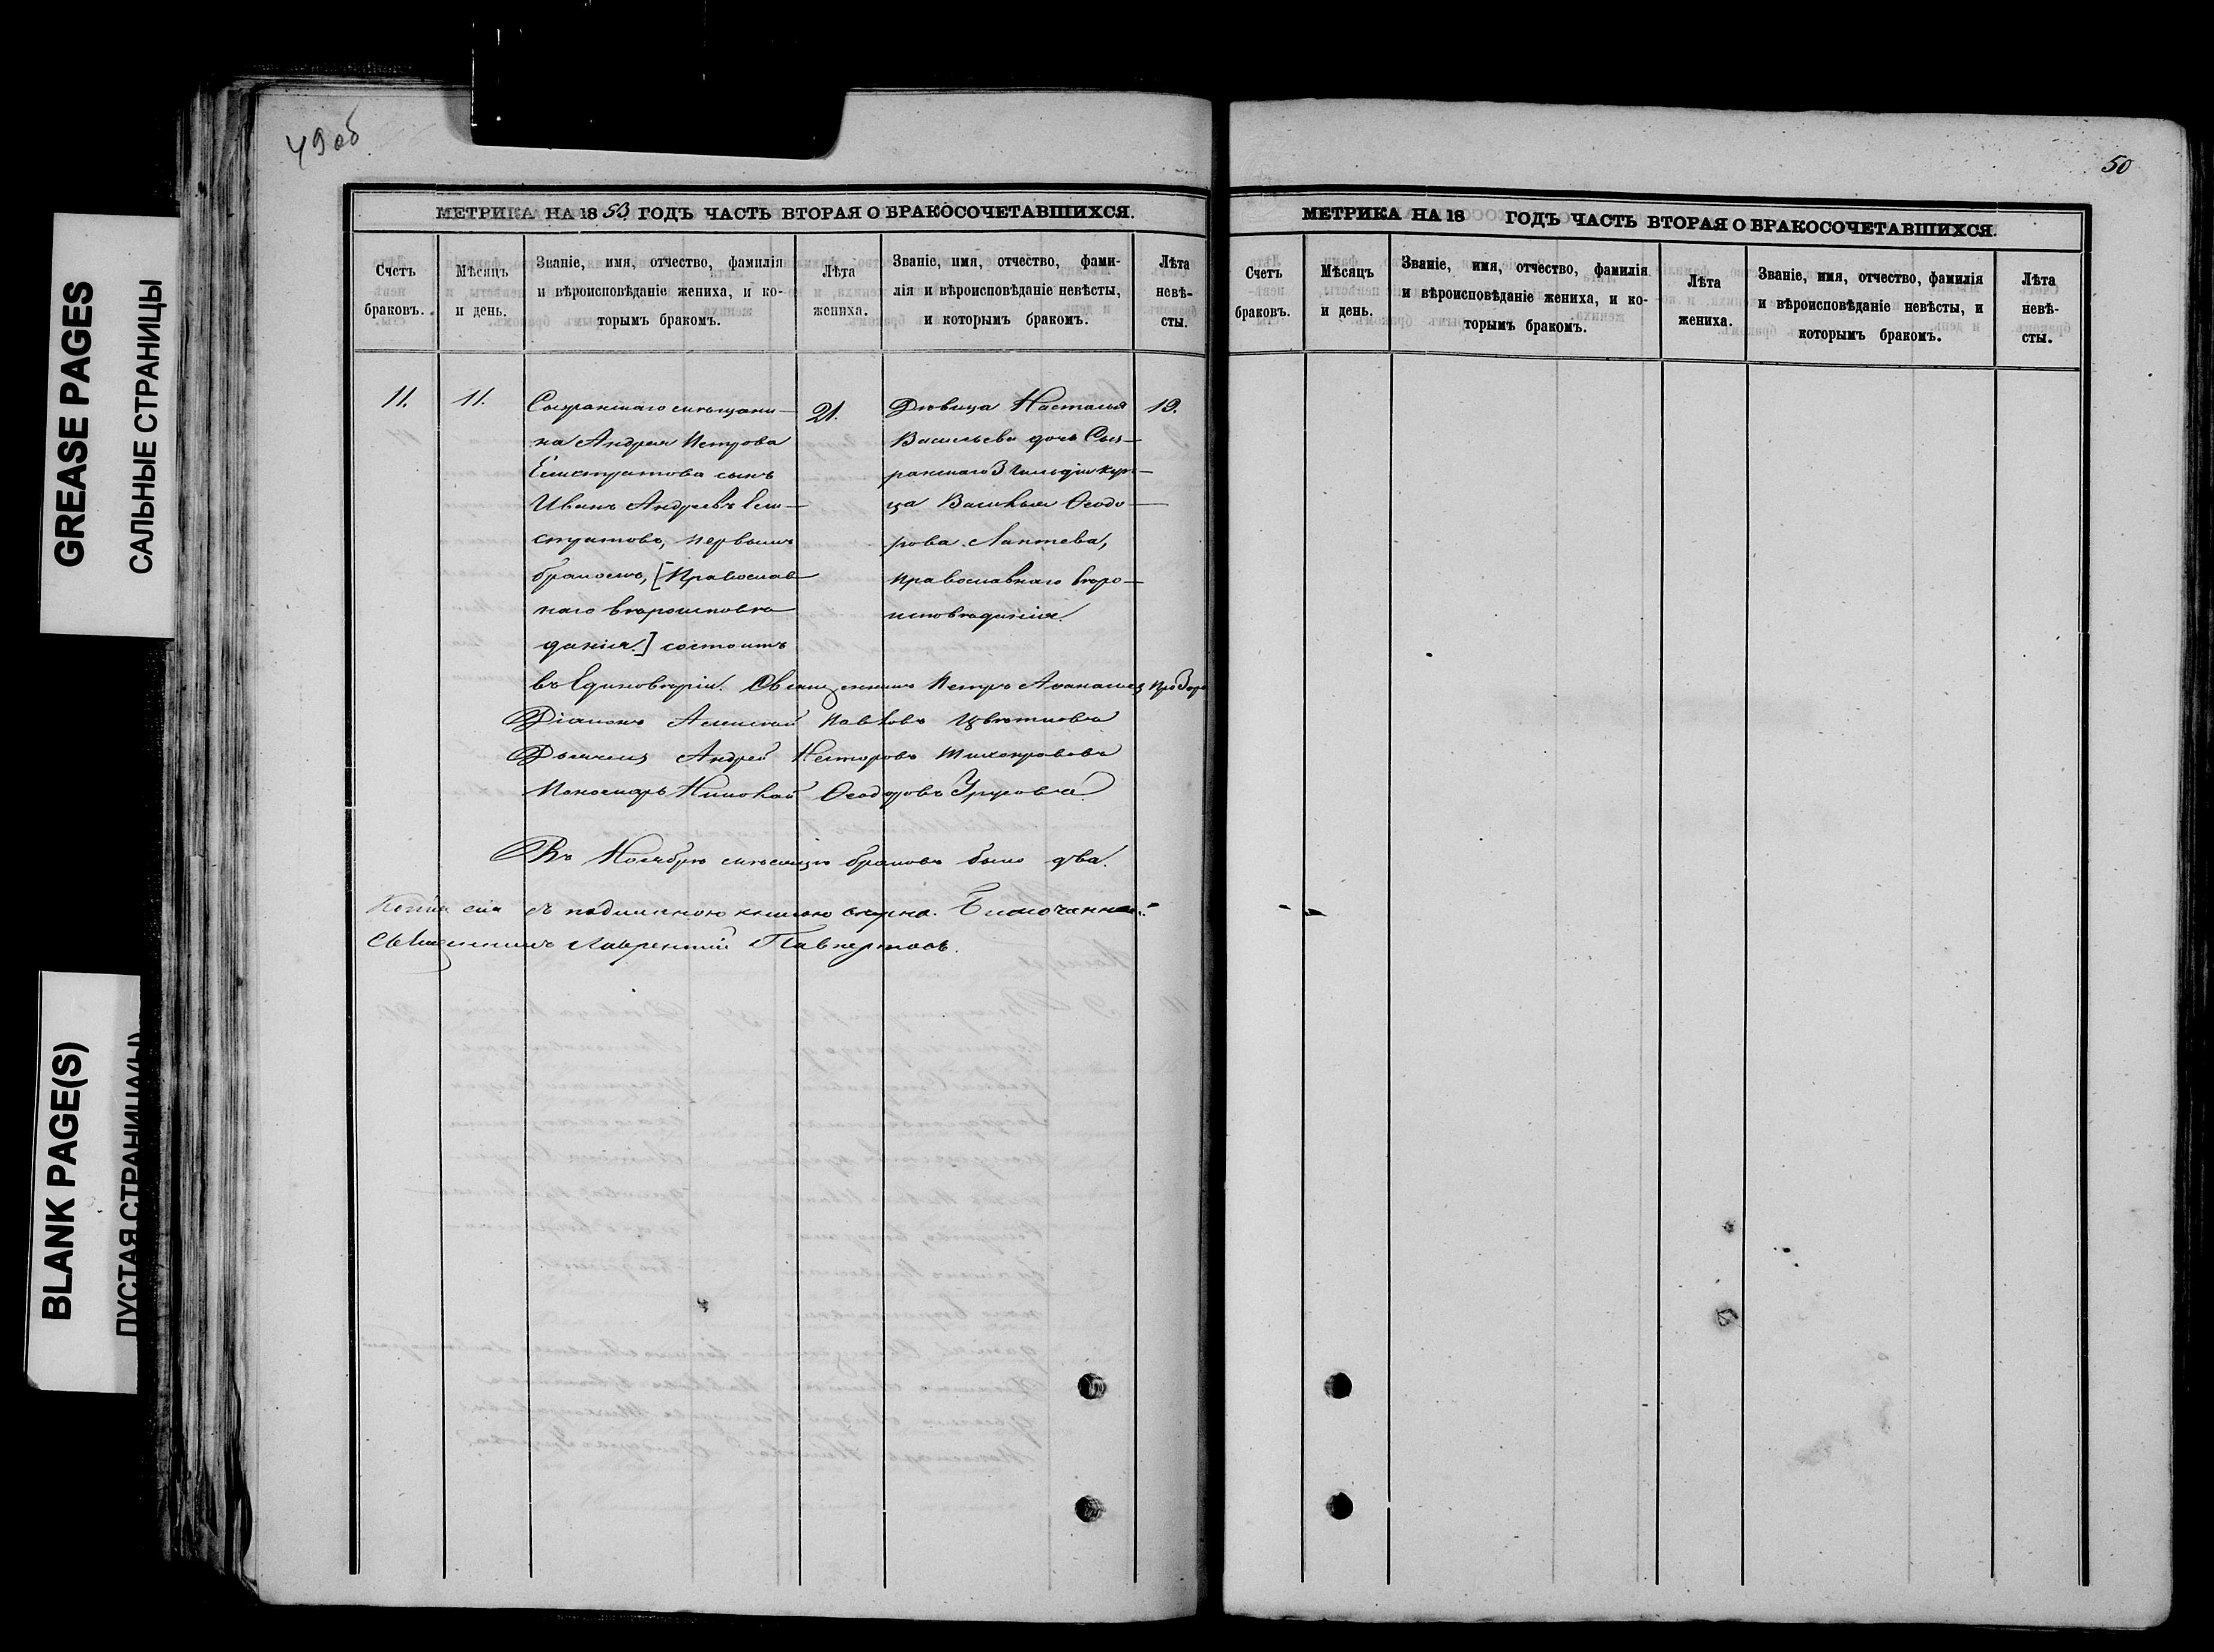 GREASE PAGES
САЛЬНЫЕ СТРАНИЦЫ
BLANK PAGE(S)
ПУСТАЯ СТРАНИЦА(Ы)
49 об
МЕТРИКА НА 18 53 ГОДЪ ЧАСТЬ ВТОРАЯ О БРАКОСОЧЕТАВШИХСЯ.
Счетъ браковъ.
Мѣсяцъ и день.
Званіе, имя, отчество, фамилія
и вѣроисповѣданіе жениха, и ко-
торымъ бракомъ.
Лѣта жениха.
Званіе, имя, отчество, фами-
лія и вѣроисповѣданіе невѣсты,
и которымъ бракомъ.
Лѣта невѣ-
сты.
11.
11.
Сызранскаго мѣщани-
на Андрея Петрова
Елистратова сынъ
Иванъ Андреевъ Ели-
стратовъ, первымъ
бракомъ, [Православ-
наго вѣроисповѣ
данія.] состоитъ
въ Единовѣріи.
21.
Дѣвица Наталья
Васильева дочь Сыз-
ранскаго 3 гильдіи куп-
ца Василья Ѳеодо-
рова Лаптева,
православнаго вѣро-
исповѣданія.
19.
Священникъ Петръ Аѳанасіевъ
Діаконъ Алексей Павловъ Цвѣтковъ
Дьячекъ Андрей Несторовъ Тихонравовъ
Пономарь Николай Ѳеодоровъ
Въ Ноябрѣ мѣсяцѣ браковъ было два.
Копія сія съ подлинною книгою вѣрна. Благочинный
Священникъ Лаврентій
50
МЕТРИКА НА 18 ГОДЪ ЧАСТЬ ВТОРАЯ О БРАКОСОЧЕТАВШИХСЯ.
Счетъ браковъ.
Мѣсяцъ и день.
Званіе, имя, отчество, фамилія
и вѣроисповѣданіе жениха, и ко-
торымъ бракомъ.
Лѣта жениха.
Званіе, имя, отчество, фамилія
и вѣроисповѣданіе невѣсты, и
которымъ бракомъ.
Лѣта невѣ-
сты.